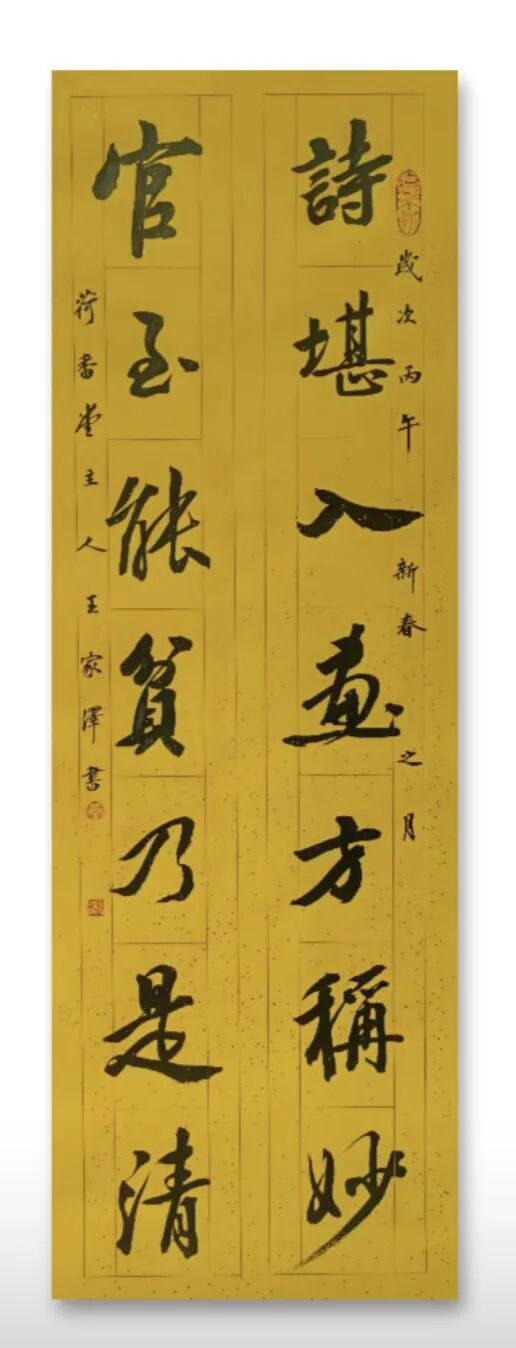 歲次丙午新春之月
詩堪入畫方稱妙
官至能貧乃是清
荷香堂主人王家澤書